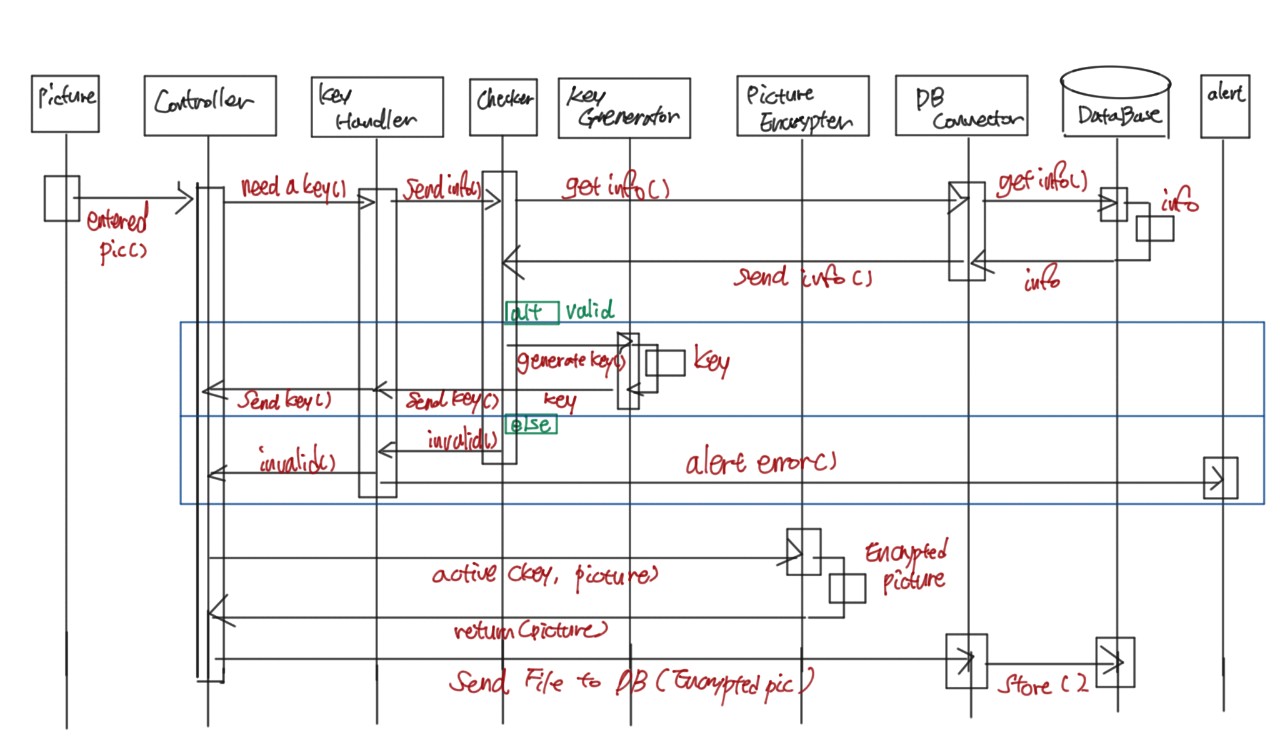 picture
Controller
key
Handler
Checker
key
Generator
Picture
Encrypter
DB
Connector
DataBase
alert
need a key()
Send info()
get info()
get info()
info
entered
pic()
send info()
info
alt valid
generate key()
key
Send key()
Send key()
key
else
invalid()
invalid()
alert error()
active (key, picture)
Encrypted
picture
return(picture)
Send File to DB (Encrypted pic)
Store ()